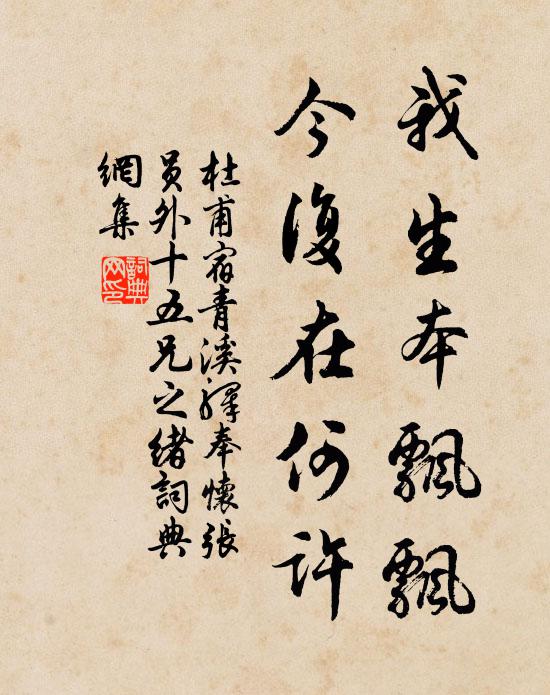 我生本飄飄
今復在何許
杜甫宿青溪驛奉懷張
員外十五兄之緒詞典
網集
詞典
网印